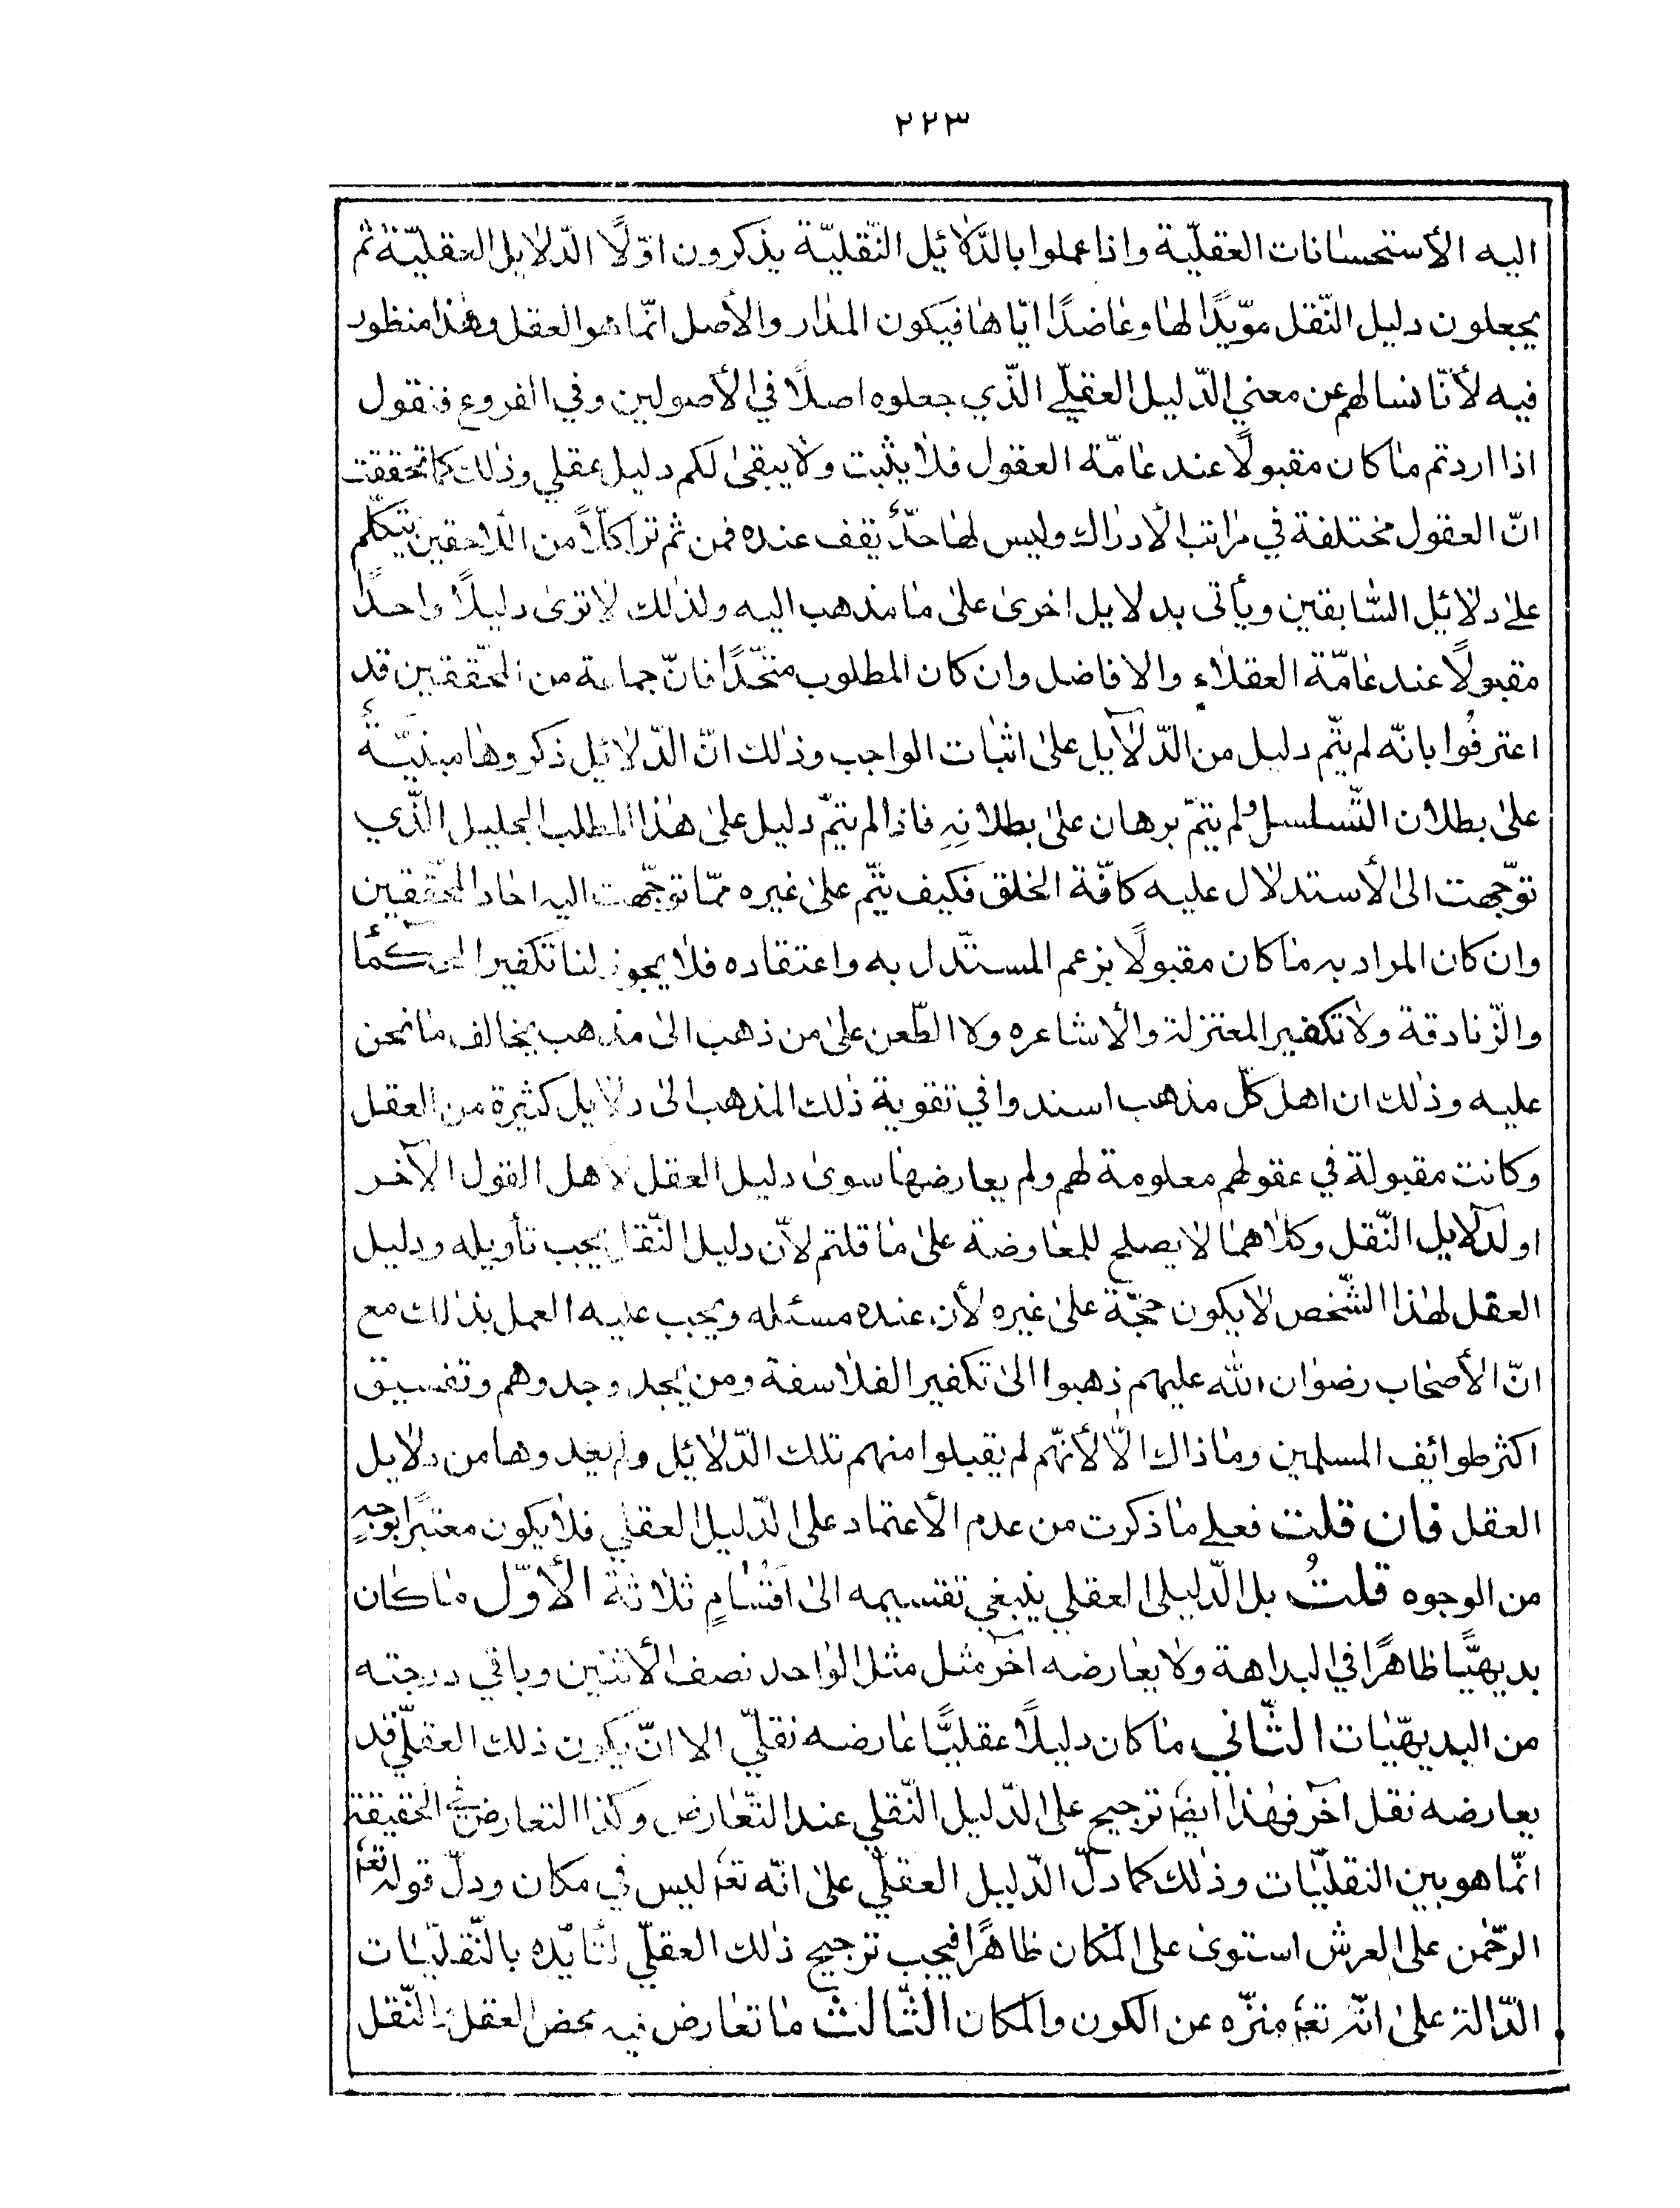 ٢٢٣
اليه الأستحسانات العقليّة واذا عملوا بالدّلائيل النّقليّة يذكرون اوّلًا الدّلايل العقليّة ثم
يجعلون دليل النّقل مويّدًا لها وعاضدًا ايّاها فيكون المدار والأصل انّما هو العقل وهذا منظور
فيه لأنّا نسالهم عن معني الدّليل العقليّ الذّي جعلوه اصلًا في الأصولين وفي الفروع فنقول
اذا اردتم ما كان مقبولًا عند عامّة العقول فلا يثبت ولا يبقىٰ لكم دليل عقلي وذلك كما تحققت
انّ العقول مختلفة في مراتب الأدراك وليس لها حدٌّ يقف عنده فمن ثم ترا كلًّا من اللاحقين يتكلّم
علىٰ دلائيل السّابقين ويأتى بدلايل اخرىٰ علىٰ ما مذهب اليه ولذلك لا ترىٰ دليلًا واحدًا
مقبولًا عند عامّة العقلاء والافاضل وان كان المطلوب متّحدًا فانّ جماعة من المحقّقين قد
اعترفُوا بانّه لم يتّم دليل من الدّلآيل علىٰ اثبات الواجب وذلك انّ الدّلائيل ذكروها مبنيّةً
علىٰ بطلان التّسلسل ولم يتمّ برهان علىٰ بطلانهِ فاذا لم يتمّ دليل علىٰ هذا المطلب الجليل الذّي
توجّهت الىٰ الأستدلال عليه كافّة الخلق فكيف يتّم علىٰ غيره ممّا توجّهت اليه احاد المحقّقين
وان كان المراد به ما كان مقبولًا بزعم المستدّل به واعتقاده فلا يجوز لنا تكفير الحكمآء
والزّنادقة ولا تكفير المعتزلة والأشاعره ولا الطّعن علىٰ من ذهب الىٰ مذهب يخالف ما نحن
عليه وذلك ان اهل كلّ مذهب اسندوا في تقوية ذلك المذهب الىٰ دلايل كثيرة من العقل
وكانت مقبولة في عقولهم معلومة لهم ولم يعارضها سوىٰ دليل العقل لاهل القول الآخر
او لدلايل النّقل وكلاهما لا يصلح للمعاوضة علىٰ ما قلتم لأنّ دليل النّقل يجب تأويله ودليل
العقل لهذا الشّخص لا يكون حجّة علىٰ غيره لأن عنده مسئله ويجب عليه العمل بذلك مع
انّ الأصحاب رضوان الله عليهم ذهبوا الىٰ تكفير الفلاسفة ومن يحذ وحذوهم وتفسيق
اكثر طوائيف المسلمين وما ذاك الّا لأنّهم لم يقبلوا منهم تلك الدّلائيل ولم يعدوها من دلايل
العقل فان قلت فعلىٰ ما ذكرت من عدم الأعتماد على الدّليل العقلي فلا يكون معتبرًا بوجهٍ
من الوجوه قلتُ بل الدّليلى العقلي ينبغي تقسيمه الىٰ اقسامٍ ثلاثة الأوّل ما كان
بديهيًّا ظاهرًا في البداهة ولا يعارضه آخر مثل مثل الواحد نصف الأثنين وباقي درجته
من البديهيّات الثّاني ما كان دليلًا عقليًّا عارضه نقليّ الا انّ يكون ذلك العقليّ قد
يعارضه نقل آخر فهذا ايضًا ترجيح على الدّليل النّقلي عند التّعارض وكذا التعارض في الحقيقة
انّما هو بين النقليّات وذلك كما دلّ الدّليل العقلّي علىٰ انّه تعٰ ليس في مكان ودلّ قوله تعٰ
الرّحمٰن على العرش استوىٰ على المكان ظاهرًا فيجب ترجيح ذلك العقلّي لتأيّده بالنّقليّات
الدّالة علىٰ انّه تعٰ منزّه عن الكون والمكان الثّالث ما تعارض فيه محض العقل والنّقل